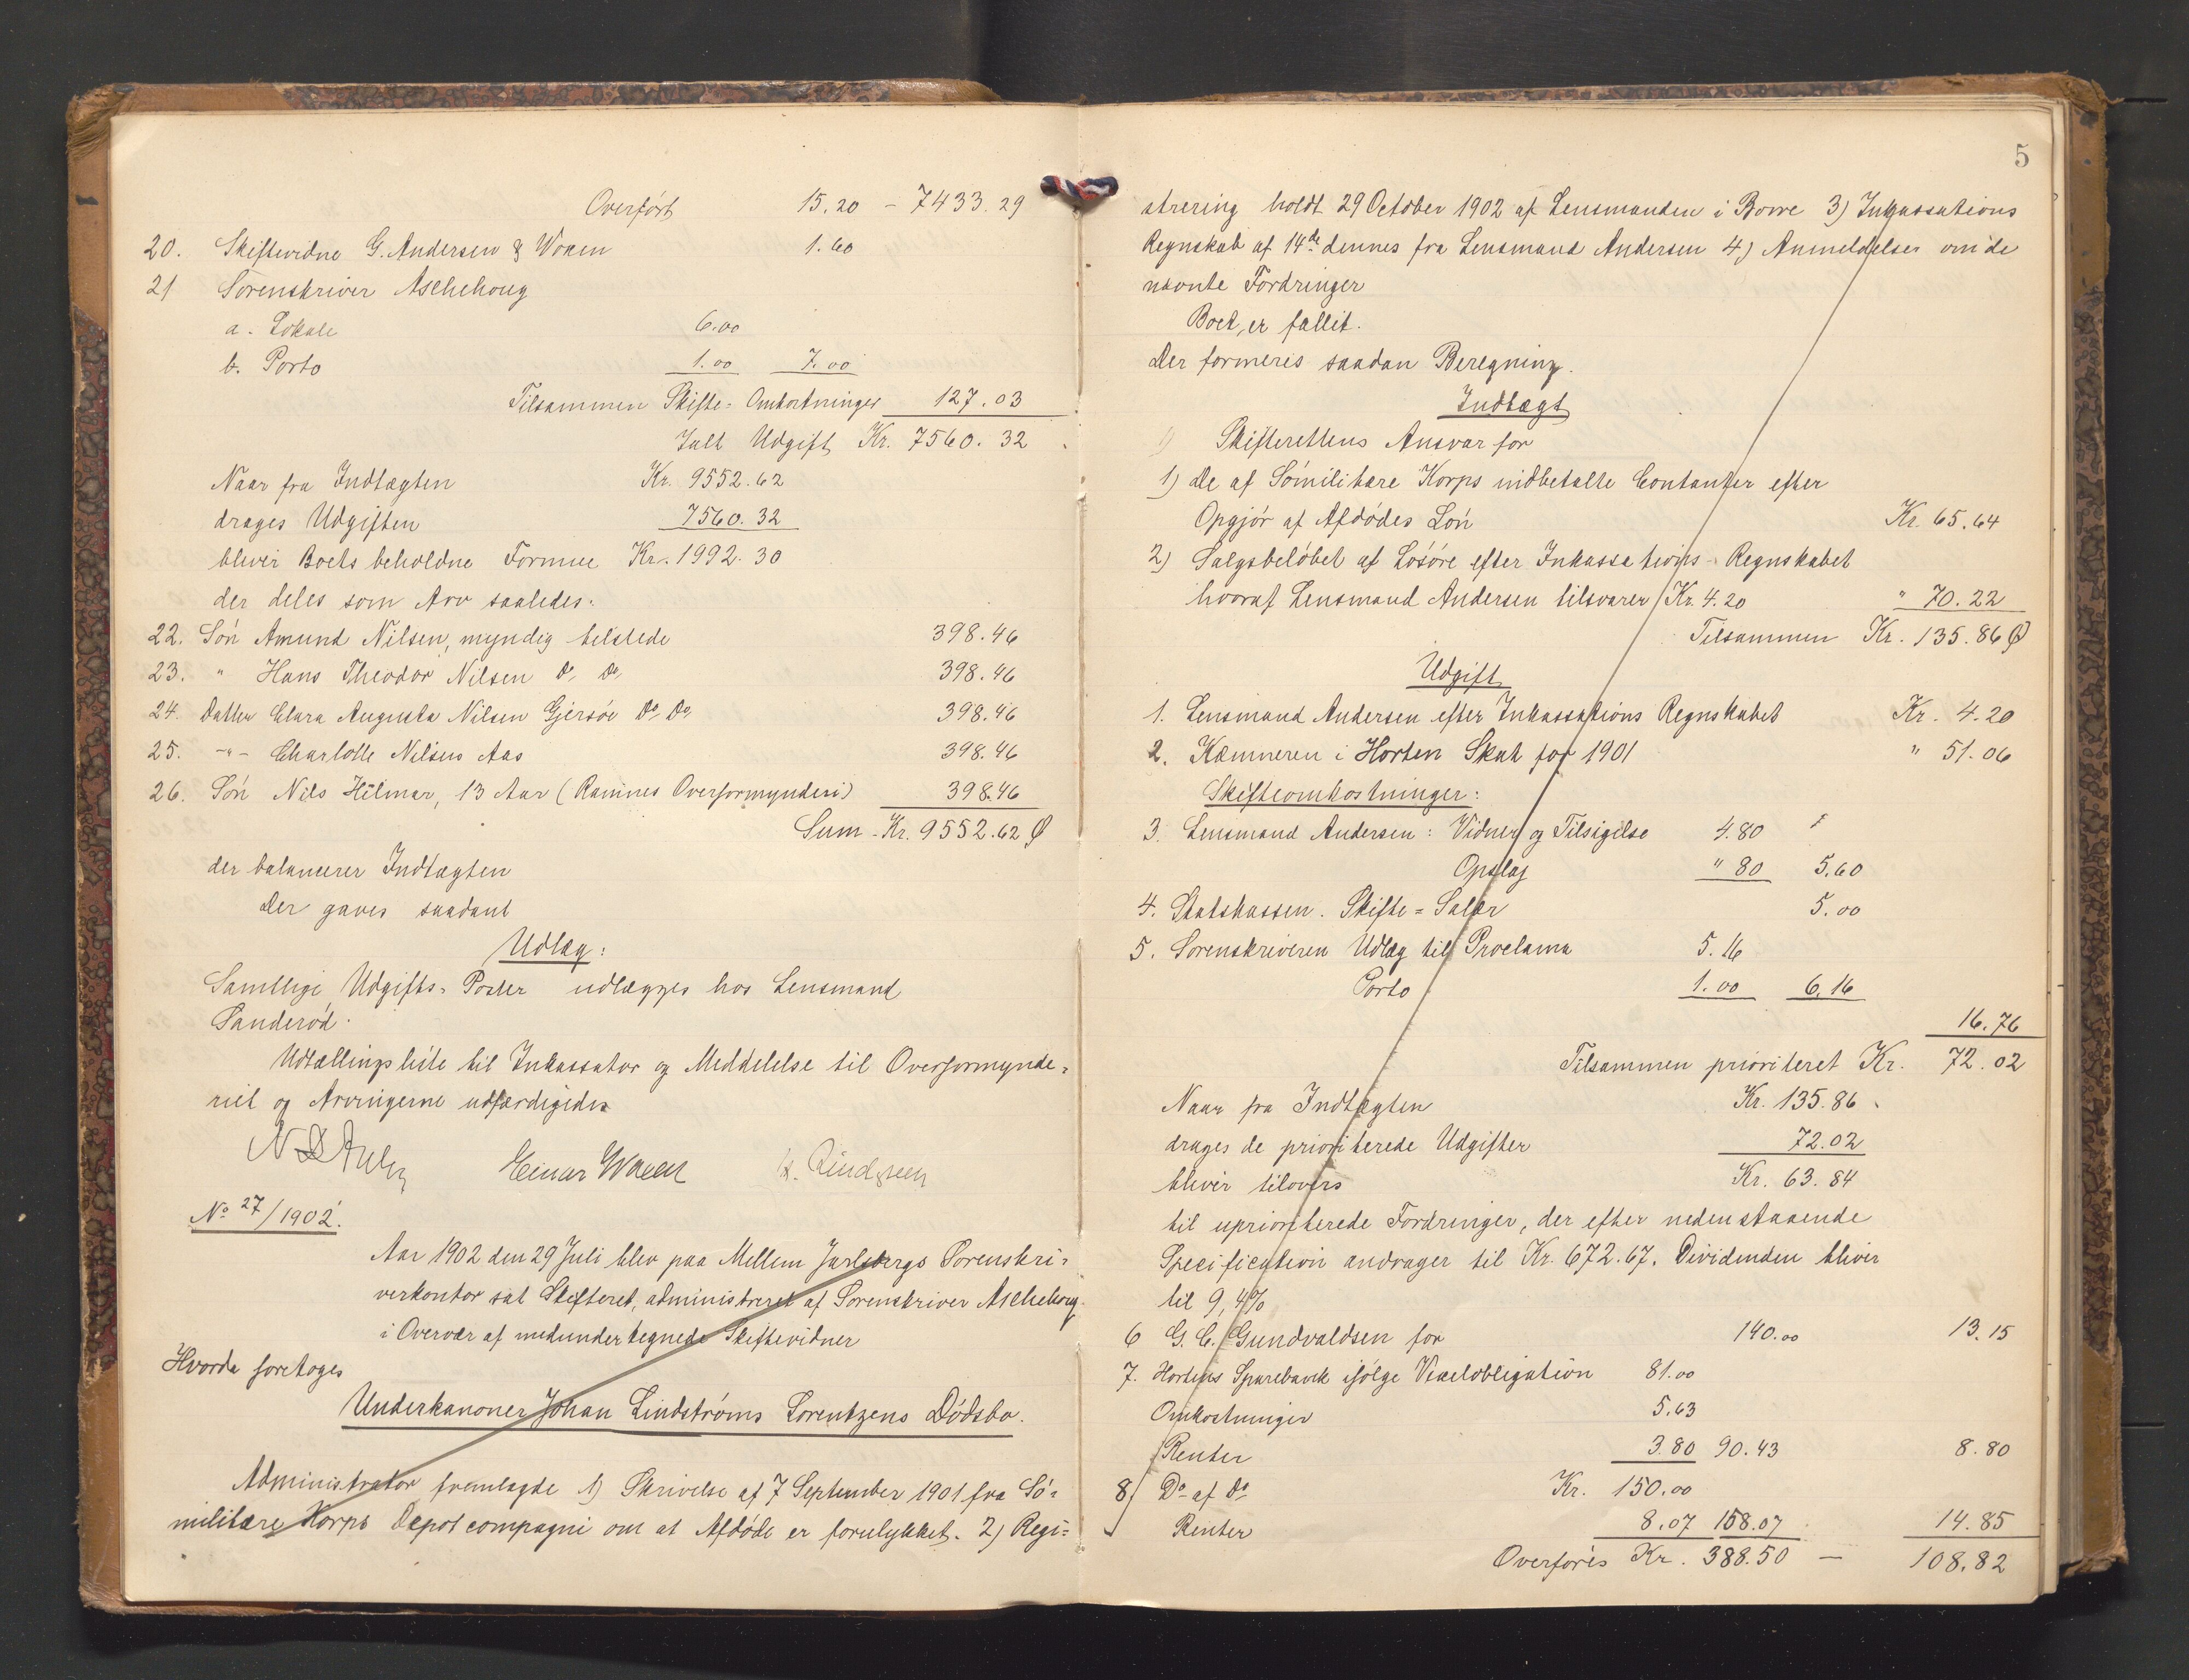 Overført 15.20 - 7433.29
20. Skiftevidne G. Andersen & Waaen 1.60
21 Sorenskriver Aschehoug
a. Lokale 6.00
b. Porto 1.00 7.00
Tilsammen Skifte-Omkostninger 127.03
Ialt Udgift Kr. 7560.32
Naar fra Indtægten Kr. 9552.62
drages Udgiften 7560.32
bliver Boets beholdne Formue Kr. 1992.30
der deles som Arv saaledes:
22. Søn Amund Nilsen, myndig tilstede 398.46
23. " Hans Theodor Nilsen Do Do 398.46
24. Datter Clara Augusta Nilsen Gjersøe Do Do 398.46
25. -"- Charlotte Nilsens Aas 398.46
26. Søn Nils Hilmar, 13 Aar (Ramnes Overformynderi) 398.46
Sum - Kr. 9552.62 Ø
der balancerer Indtægten
Der gaves saadant
Udlæg:
Samtlige Udgifts-Poster udlægges hos Lensmand
Sanderød.
Udtællingsliste til Inkassator og Meddelelse til Overformynde-
riet og Arvingerne udfærdigedes
Einar Waaen K. Lindgreen
No 27/1902.
Aar 1902 den 29 Juli blev paa Mellem Jarlsbergs Sorenskri-
verkontor sat Skifteret, administreret af Sorenskriver Aschehoug
i Overvær af medundertegnede Skiftevidner
Hvorda foretoges
Underkanoner Johan Lindstrøms Lorentzens Dødsbo.
Administrator fremlagde 1) Skrivelse af 7 September 1901 fra Sø-
militære Korps Depotcompagni om at Afdøde er forulykket. 2) Regi-
5
strering holdt 29 October 1902 af Lensmanden i Borre 3) Inkassations
Regnskab af 14de dennes fra Lensmand Andersen 4) Anmeldelser om de
nævnte Fordringer
Boet er fallit.
Der formeres saadan Beregning.
Indtægt
Skifterettens Ansvar for
1) De af Sømilitære Korps indbetalte Contanter efter
Opgjør af Afdødes Løn Kr. 65.64
2) Salgsbeløbet af Løsøre efter Inkassations-Regnskabet
hvoraf Lensmand Andersen tilsvarer Kr. 4.20 " 70.22
Tilsammen Kr. 135.86 Ø
Udgift
1. Lensmand Andersen efter Inkassations Regnskabet Kr. 4.20
2. Kæmneren i Horten Skat for 1901 " 51.06
Skifteomkostninger:
3. Lensmand Andersen: Vidner og Tilsigelse 4.80
Opslag " 80 5.60
4. Statskassen. Skifte-Salær 5.00
5. Sorenskriveren Udlæg til Proclama 5.16
Porto 1.00 6.16
16.76
Tilsammen prioriteret Kr. 72.02
Naar fra Indtægten Kr. 135.86
drages de prioriterede Udgifter 72.02
bliver tilovers Kr. 63.84
til uprioriterede Fordringer, der efter nedenstaaende
Specification andrager til Kr. 672.67. Dividenden bliver
til 9,4%
6 G. C. Gundvaldsen for 140.00 13.15
7. Hortens Sparebank ifølge Vexelobligation 81.00
Omkostninger 5.63
Renter 3.80 90.43 8.80
8) Do af do Kr. 150.00
Renter 8.07 158.07 14.85
Overføres Kr. 388.50 — 108.82